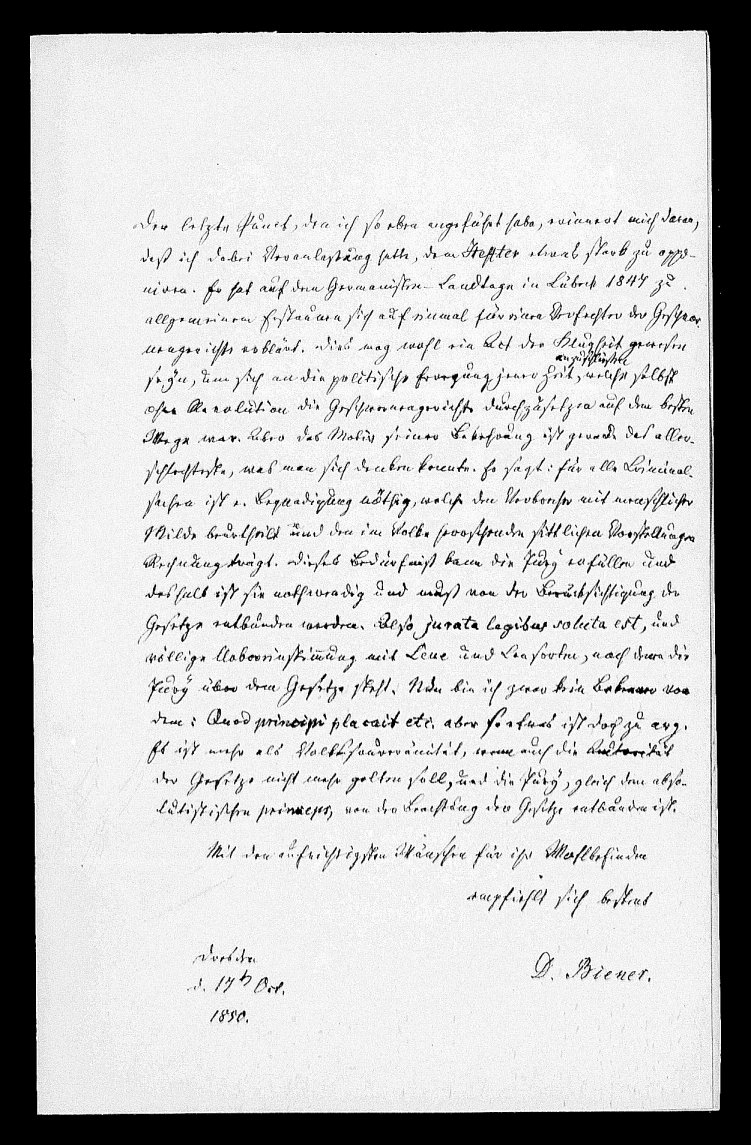 Der letzte Punct, den ich so eben angeführt habe, erinnert mich daran,
daß ich dabei Veranlassung hatte, dem Heffter etwas stark zu oppo-
niren. Er hat auf dem Germanisten-Landtage in Lübeck 1847 zu
allgemeinem Erstaunen sich auf einmal für einen Verfechter der Geschwor-
nengerichte erklärt. Dies mag wohl ein Act der Klugheit gewesen
anzuschließen
seyn, um sich an die politische Erregung jener Zeit, welche selbst
ohne Revolution die Geschwornengerichte durchzusetzen auf dem besten
Wege war. Aber das Motiv seiner Bekehrung ist gerade das aller-
schlechteste, was man sich denken konnte. Er sagt: für alle Criminal-
sachen ist e. Begnadigung nöthig, welche den Verbrecher mit menschlicher
Milde beurtheilt und den im Volke herrschenden sittlichen Vorstellungen
Rechnung trägt. Dieses Bedürfniß kann die Jury erfüllen und
deshalb ist sie nothwendig und muß von der Berücksichtigung der
Gesetze entbunden werden. Also jurata legibus soluta est, und
völlige Uebereinstimmung mit und Consorten, nach denen die
Jury über dem Gesetze steht. Nun bin ich zwar kein Bekenner von
dem: Quod principi placuit etc. aber so etwas ist doch zu arg.
Es ist mehr als Volkssouveränität, wenn auch die Autorität
der Gesetze nicht mehr gelten soll, und die Jury, gleich dem abso-
lutistischen princeps, von der Beachtung der Gesetze entbunden ist.
Mit den aufrichtigsten Wünschen für ihr Wohlbefinden
empfiehlt sich bestens
Dresden
d. 17t Oct.
1850.
D. Biener.